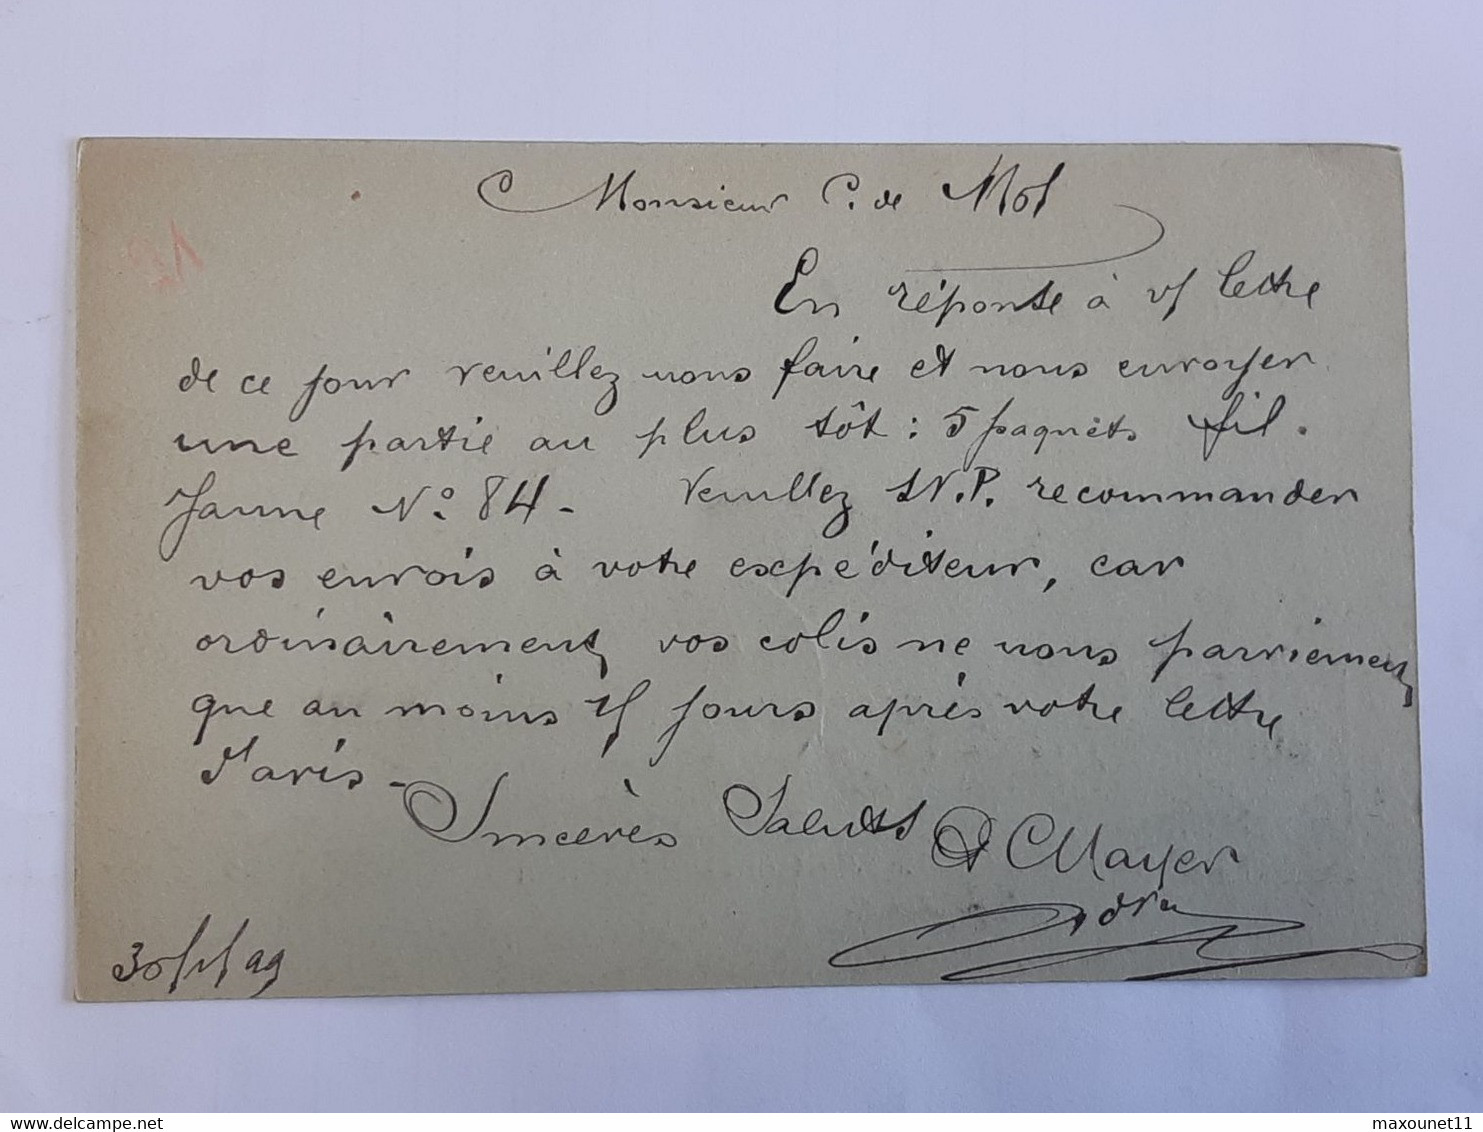 Monsieur C. de Mot
En réponse à v/ lettre
de ce jour veuillez nous faire et nous envoyer
une partie au plus tôt : 5 paquets fil.
Jaune N° 84 - Veuillez S.V.P. recommander
vos envois à votre expéditeur, car
ordinairement vos colis ne nous parviennent
que au moins 15 jours après votre lettre
d'avis -
Sincères Saluts
Mayer
delcampe.net
maxounet11